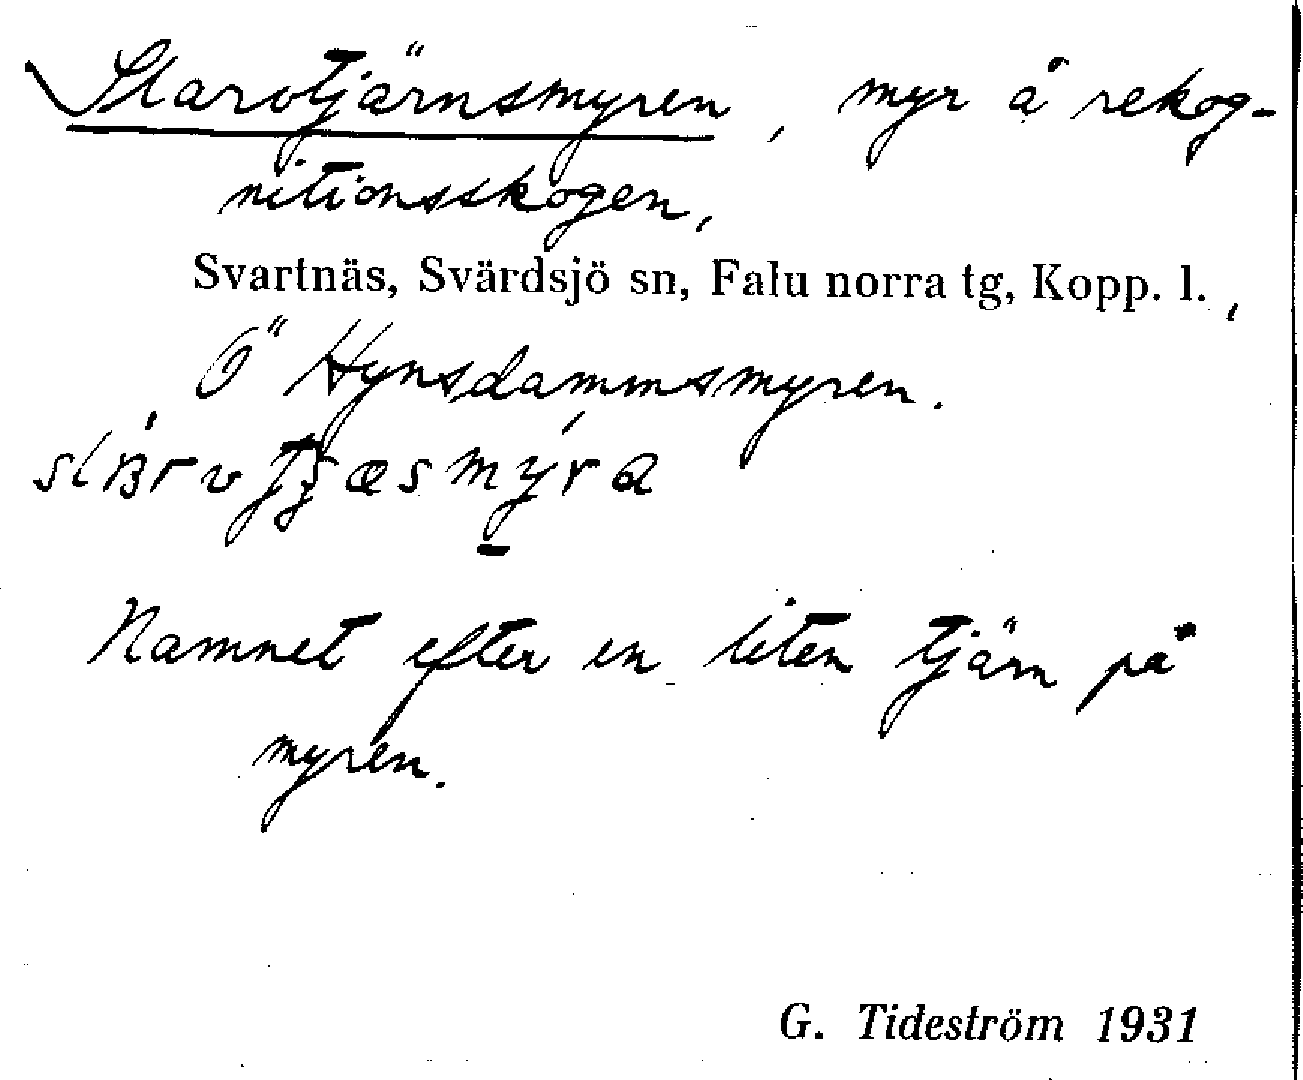 Slarvtjärnsmyren, myr å rekog-
nitionsskogen,
Svartnäs, Svärdsjö sn, Falu norra tg, Kopp. l.,
Ö" Hynsdammsmyren.
Namnet efter en liten tjärn på
myren.
G. Tideström 1931